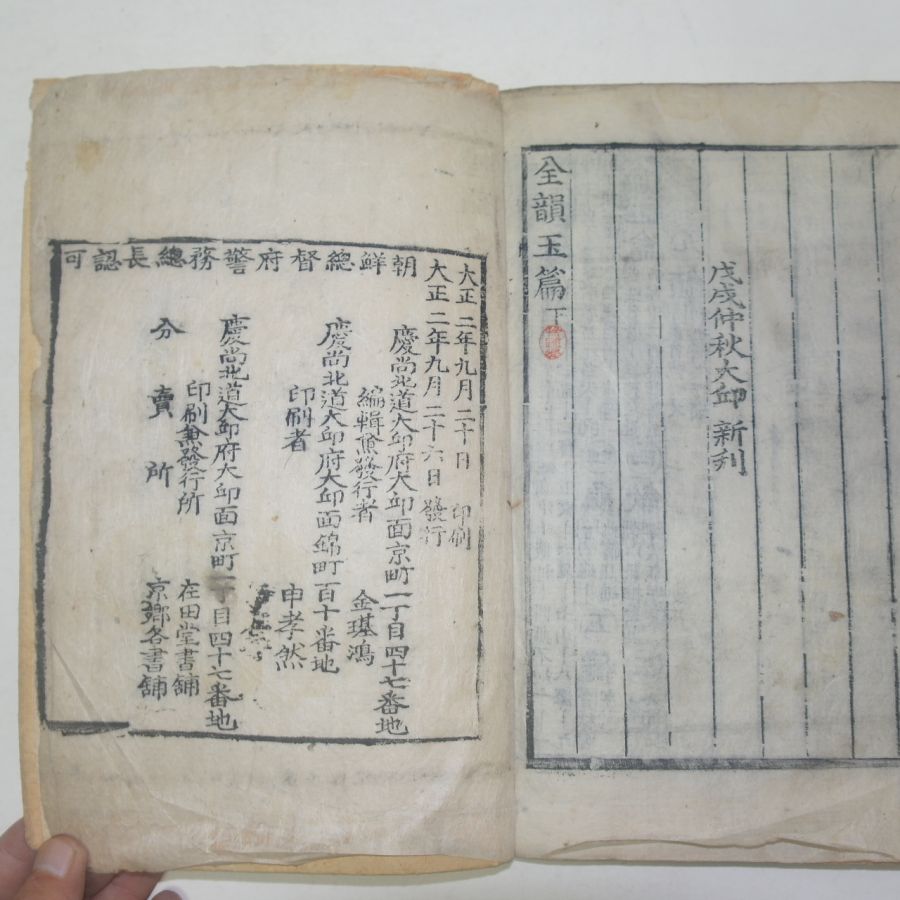 戊戌仲秋大邱新刋
全韻玉篇下
朝鮮總督府警務總長認可
大正二年九月二十日 印刷
大正二年九月二十六日 發行
慶尚北道大邱府大邱面京町一丁目四十七番地
編輯兼發行者 金璂鴻
慶尚北道大邱府大邱面錦町百十番地
印刷者 申孝然
慶尚北道大邱府大邱面京町一丁目四十七番地
印刷兼發行所 在田堂書鋪
分賣所 京鄉各書舖